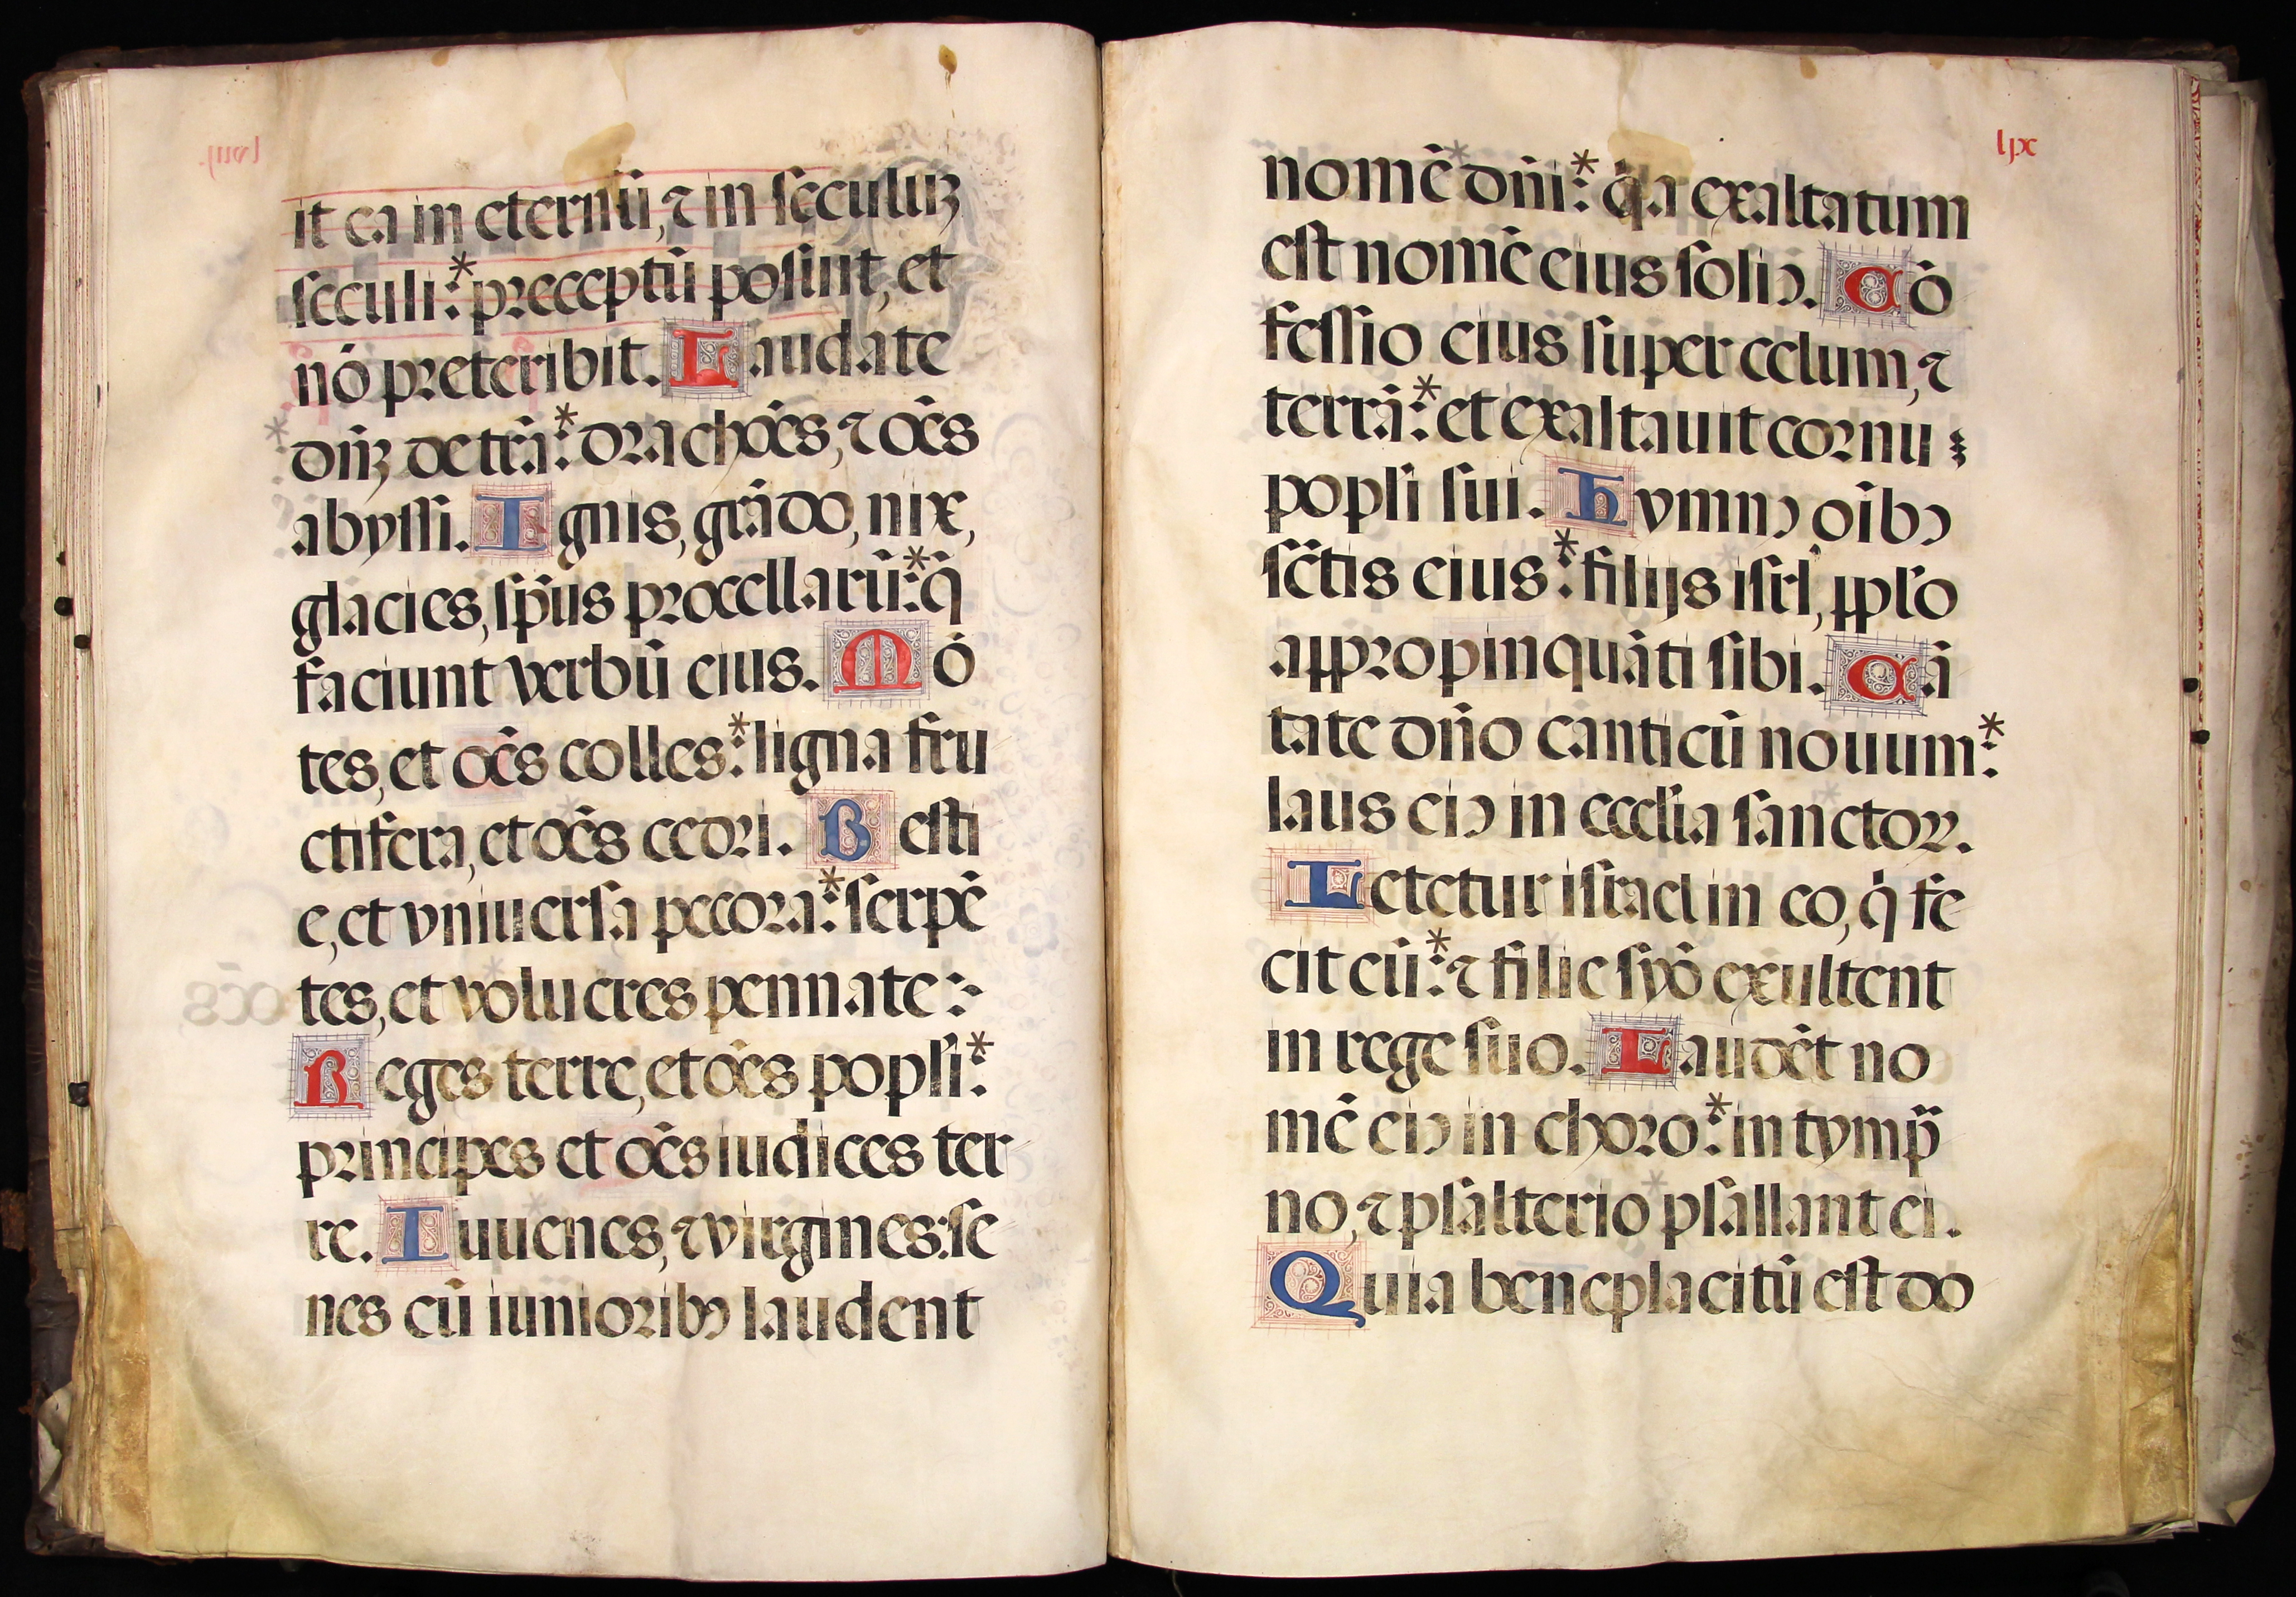 it ea in eternū, ⁊ in seculuꝫ
seculi:* preceptū posuit, et
nō preteribit. Laudate
dn̄ꝫ de trā:* dracōēs, ⁊ oēs
abyssi. Ignis, grādo, nix,
glacies, sp̄us procellarū:* q̄
faciunt verbū eius. Mō
tes, et oēs colles:* ligna fru
ctifera, et oēs cedri. Besti
e, et vniuersa pecora:* serpē
tes, et volucres pennate:~
Reges terre, et oēs popl̄i:*
principes et oēs iudices ter
re. Iuuenes, ⁊ virgines: se
nes cū iunioribꝫ laudent
lix
nomē dn̄i:* q̇a exaltatum
est nomē eius soliꝰ. Cō
fessio eius super celum, ⁊
terrā:* et exaltauit cornu
popl̄i sui. Hymnꝰ oībꝰ
sc̄tis eius:* filijs isrl̄, pp̄lo
appropinquāti sibi. Cā
tate dn̄o canticū nouum:*
laus eiꝰ in eccl̄ia sanctoꝝ.
Letetur israel in eo, q̇ fe
cit eū:* ⁊ filie syō exultent
in rege suo. Laudēt no
mē eiꝰ in choro:* in tymp̄
no, ⁊ psalterio psallant ei.
Quia beneplacitū est do